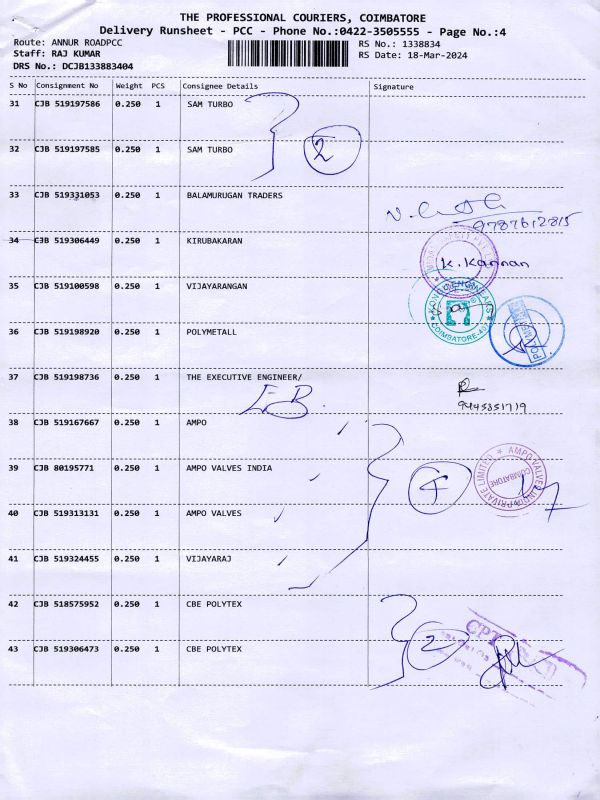 THE PROFESSIONAL COURIERS, COIMBATORE
Delivery Runsheet - PCC - Phone No.:0422-3505555 - Page No.:4
Route: ANNUR ROADPCC RS No.: 1338834
Staff: RAJ KUMAR RS Date: 18-Mar-2024
DRS No.: DCJB133883404
S No Consignment No Weight PCS Consignee Details Signature
31 CJB 519197586 0.250 1 SAM TURBO
2
32 CJB 519197585 0.250 1 SAM TURBO
33 CJB 519331053 0.250 1 BALAMURUGAN TRADERS
9787612815
34 CJB 519306449 0.250 1 KIRUBAKARAN
K. Kannan
35 CJB 519100598 0.250 1 VIJAYARANGAN
COIMBATORE
36 CJB 519198920 0.250 1 POLYMETALL
37 CJB 519198736 0.250 1 THE EXECUTIVE ENGINEER/
EB.
9445851719
38 CJB 519167667 0.250 1 AMPO
39 CJB 80195771 0.250 1 AMPO VALVES INDIA
4
AMPO VALVES INDIA PRIVATE LIMITED
COIMBATORE
40 CJB 519313131 0.250 1 AMPO VALVES
41 CJB 519324455 0.250 1 VIJAYARAJ
42 CJB 518575952 0.250 1 CBE POLYTEX
2
43 CJB 519306473 0.250 1 CBE POLYTEX